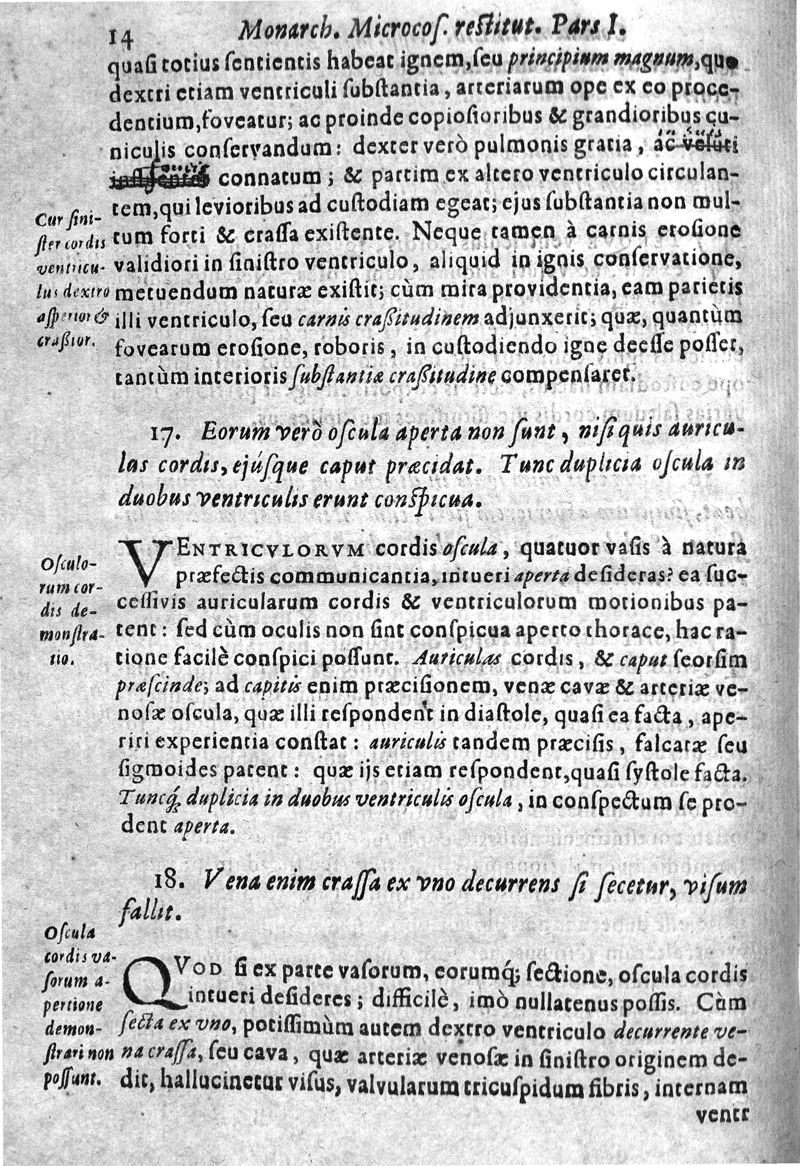 14 Monarch. Microcoſ. reſtitut. Pars I.
quaſi totius ſentientis habeat ignem, ſeu principium magnum, quo
dextri etiam ventriculi ſubſtantia, arteriarum ope ex eo proce-
dentium, foveatur; ac proinde copioſioribus & grandioribus cu-
niculis conſervandum: dexter verò pulmonis gratia, ac veluti
connatum; & partim ex altero ventriculo circulan-
tem, qui levioribus ad cuſtodiam egeat; ejus ſubſtantia non mul-
tum forti & craſſa exiſtente. Neque tamen à carnis eroſione
validiori in ſiniſtro ventriculo, aliquid in ignis conſervatione,
metuendum naturæ exiſtit; cùm mira providentia, eam parietis
illi ventriculo, ſeu carnis craßitudinem adjunxerit; quæ, quantùm
fovearum eroſione, roboris, in cuſtodiendo igne deeſſe poſſet,
tantùm interioris ſubſtantiæ craßitudine compenſaret.
Cur ſini-
ſter cordis
ventricu-
lus dextro
aſperior &
craßior.
17. Eorum verò oſcula aperta non ſunt, niſi quis auricu-
las cordis, ejúſque caput præcidat. Tunc duplicia oſcula in
duobus ventriculis erunt conſpicua.
VENTRICVLORVM cordis oſcula, quatuor vaſis à natura
præfectis communicantia, intueri aperta deſideras? ea ſuc-
ceſſivis auricularum cordis & ventriculorum motionibus pa-
tent: ſed cùm oculis non ſint conſpicua aperto thorace, hac ra-
tione facilè conſpici poſſunt. Auriculas cordis, & caput ſeorſim
præſcinde; ad capitis enim præciſionem, venæ cavæ & arteriæ ve-
noſæ oſcula, quæ illi reſpondent in diaſtole, quaſi ea facta, ape-
riri experientia conſtat: auriculis tandem præciſis, falcatæ ſeu
ſigmoides patent: quæ ijs etiam reſpondent, quaſi ſyſtole facta.
Tuncq́; duplicia in duobus ventriculis oſcula, in conſpectum ſe pro-
dent aperta.
Oſculo-
rum cor-
dis de-
monſtra-
tio.
18. Vena enim craſſa ex vno decurrens ſi ſecetur, viſum
fallit.
QVOD ſi ex parte vaſorum, eorumq́; ſectione, oſcula cordis
intueri deſideres; difficilè, imò nullatenus poſſis. Cùm
ſecta ex vno, potiſſimùm autem dextro ventriculo decurrente ve-
na craſſa, ſeu cava, quæ arteriæ venoſæ in ſiniſtro originem de-
dit, hallucinetur viſus, valvularum tricuſpidum fibris, internam
ventr
Oſcula
cordis va-
ſorum a-
pertione
demon-
ſtrari non
poſſunt.